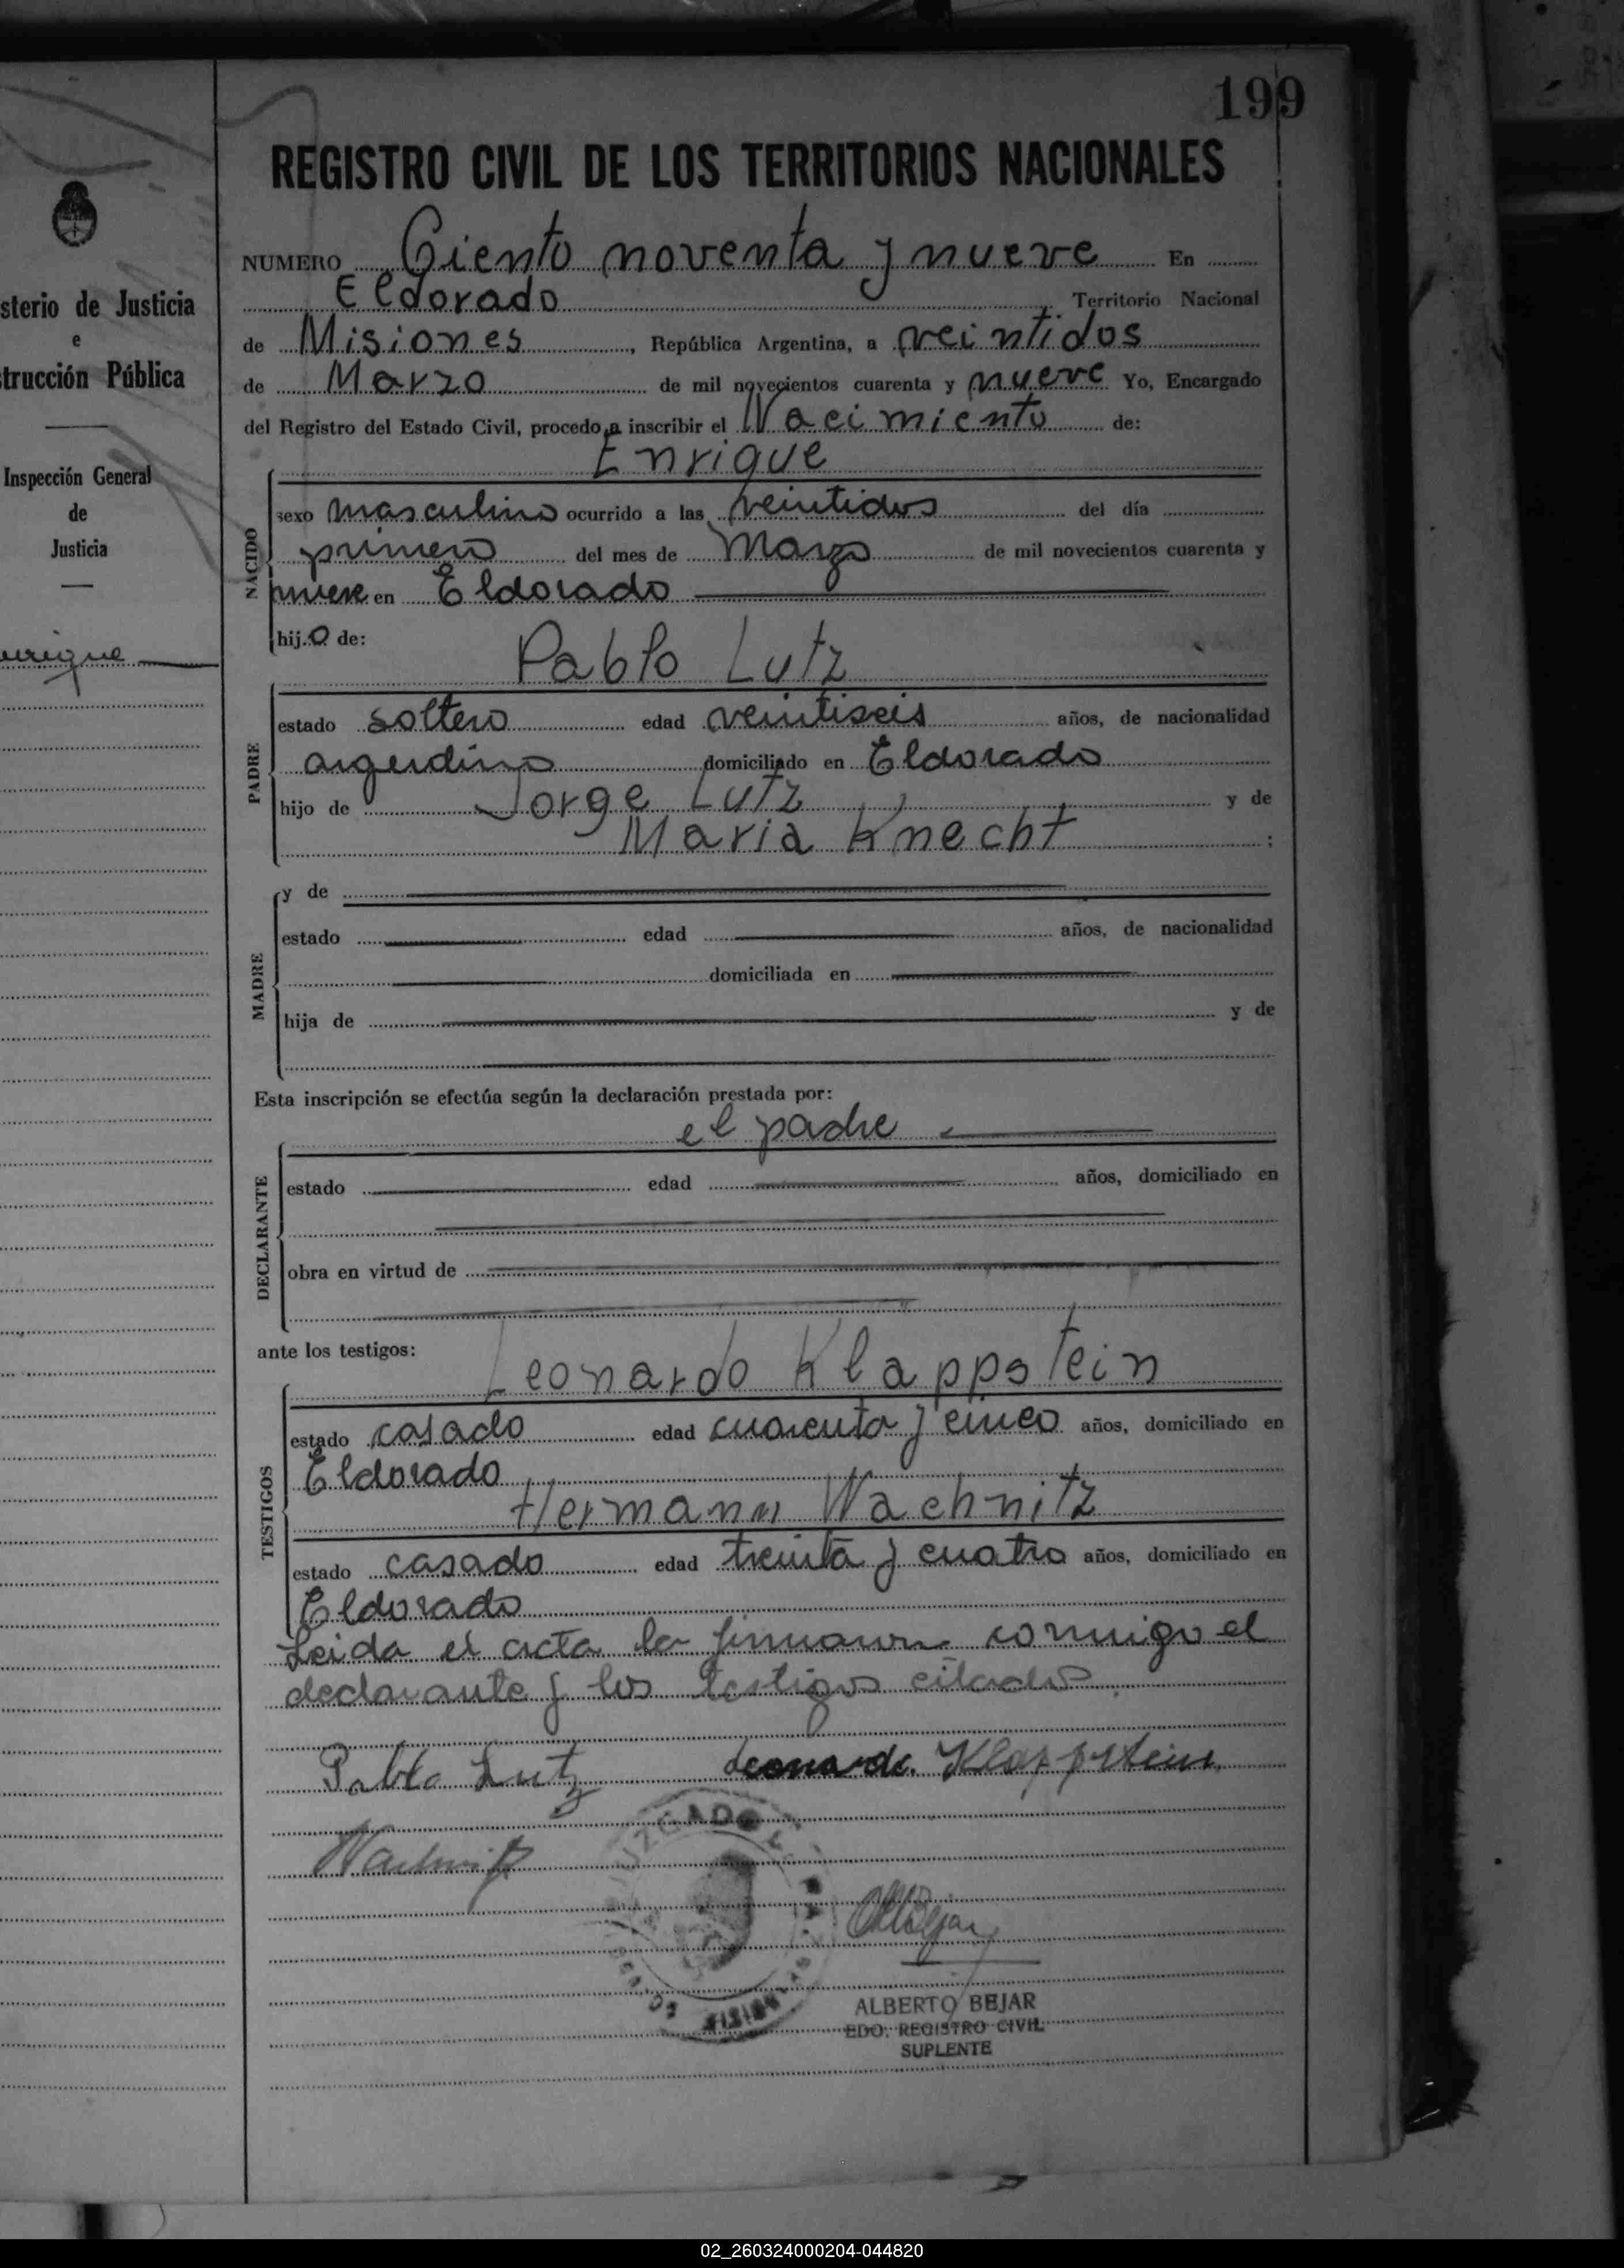 199
sterio de Justicia
e
strucción Pública
Inspección General
de
Justicia
REGISTRO CIVIL DE LOS TERRITORIOS NACIONALES
NUMERO Ciento noventa y nueve En
Eldorado Territorio Nacional
de Misiones, República Argentina, a veintidos
de Marzo de mil novecientos cuarenta y nueve Yo, Encargado
del Registro del Estado Civil, procedo a inscribir el Nacimiento de:
Enrique
NACIDO
sexo masculino ocurrido a las veintidos del día
primero del mes de Marzo de mil novecientos cuarenta y
nueve en Eldorado
hijo de:
Pablo Lutz
PADRE
estado soltero edad veintiseis años, de nacionalidad
argentino domiciliado en Eldorado
hijo de Jorge Lutz y de
Maria Knecht ;
MADRE
y de
estado edad años, de nacionalidad
domiciliada en
hija de y de
Esta inscripción se efectúa según la declaración prestada por:
el padre
DECLARANTE
estado edad años, domiciliado en
obra en virtud de
ante los testigos:
Leonardo Klappstein
TESTIGOS
estado casado edad cuarenta y cinco años, domiciliado en
Eldorado
Hermann Wachnitz
estado casado edad treinta y cuatro años, domiciliado en
Eldorado
Leida el acta la firmaron conmigo el
declarante y los testigos citados.
Pablo Lutz Leonardo Klappstein
Wachnitz
ALBERTO BEJAR
EDO. REGISTRO CIVIL
SUPLENTE
02_260324000204-044820